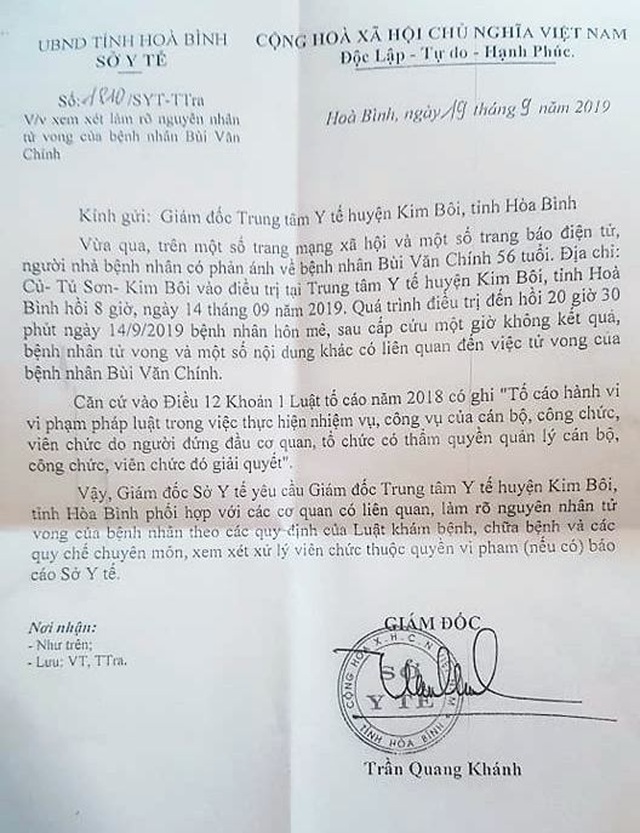 UBND TỈNH HOÀ BÌNH
SỞ Y TẾ
CỘNG HOÀ XÃ HỘI CHỦ NGHĨA VIỆT NAM
Độc Lập - Tự do - Hạnh Phúc.
Số: 1810/SYT-TTra
V/v xem xét làm rõ nguyên nhân
tử vong của bệnh nhân Bùi Văn
Chính
Hoà Bình, ngày 19 tháng 9 năm 2019
Kính gửi: Giám đốc Trung tâm Y tế huyện Kim Bôi, tỉnh Hòa Bình
Vừa qua, trên một số trang mạng xã hội và một số trang báo điện tử,
người nhà bệnh nhân có phản ánh về bệnh nhân Bùi Văn Chính 56 tuổi. Địa chỉ:
Củ- Tú Sơn- Kim Bôi vào điều trị tại Trung tâm Y tế huyện Kim Bôi, tỉnh Hoà
Bình hồi 8 giờ, ngày 14 tháng 09 năm 2019. Quá trình điều trị đến hồi 20 giờ 30
phút ngày 14/9/2019 bệnh nhân hôn mê, sau cấp cứu một giờ không kết quả,
bệnh nhân tử vong và một số nội dung khác có liên quan đến việc tử vong của
bệnh nhân Bùi Văn Chính.
Căn cứ vào Điều 12 Khoản 1 Luật tố cáo năm 2018 có ghi "Tố cáo hành vi
vi phạm pháp luật trong việc thực hiện nhiệm vụ, công vụ của cán bộ, công chức,
viên chức do người đứng đầu cơ quan, tổ chức có thẩm quyền quản lý cán bộ,
công chức, viên chức đó giải quyết".
Vậy, Giám đốc Sở Y tế yêu cầu Giám đốc Trung tâm Y tế huyện Kim Bôi,
tỉnh Hòa Bình phối hợp với các cơ quan có liên quan, làm rõ nguyên nhân tử
vong của bệnh nhân theo các quy định của Luật khám bệnh, chữa bệnh và các
quy chế chuyên môn, xem xét xử lý viên chức thuộc quyền vi phạm (nếu có) báo
cáo Sở Y tế.
Nơi nhận:
- Như trên;
- Lưu: VT, TTra.
GIÁM ĐỐC
CỘNG HOÀ X.H.C.N VIỆT NAM
SỞ
Y TẾ
TỈNH HÒA BÌNH
Trần Quang Khánh